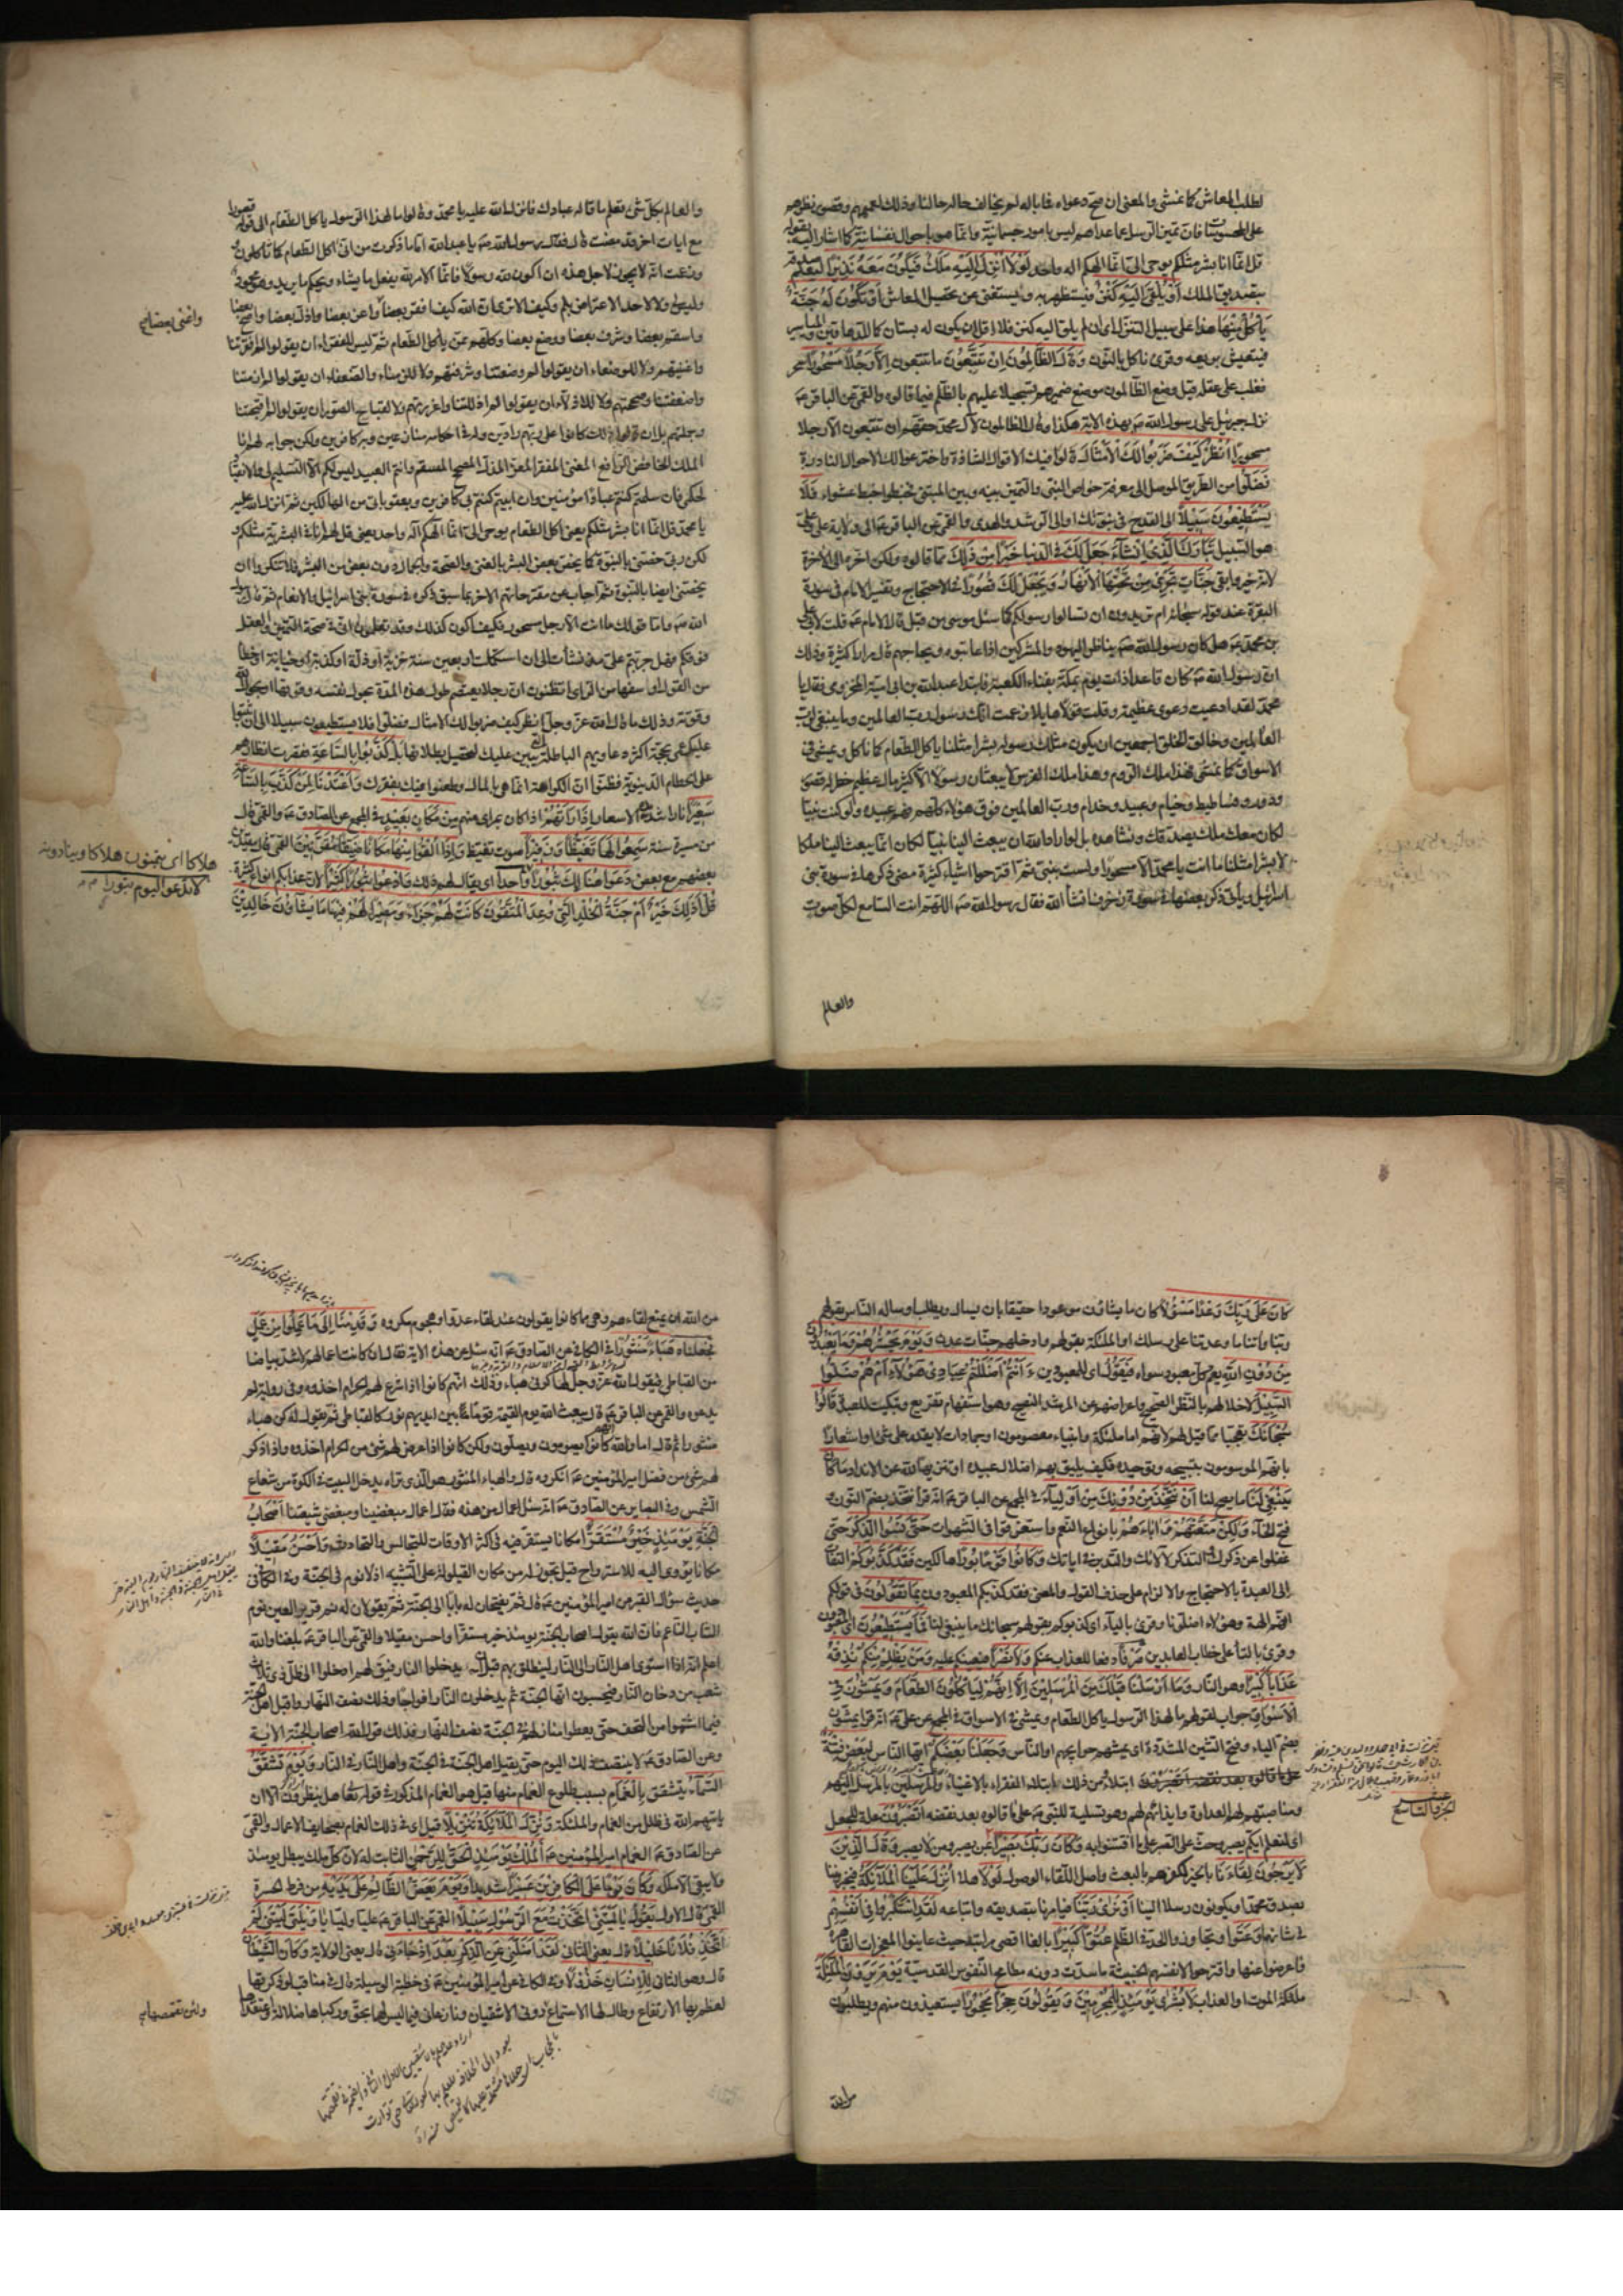 لطلب المعاش كما نمشى والمعنى ان صح دعواه فما باله لم يخالف حاله حالنا وذلك لعمههم وقصور نظرهم
على المحسوسات فان تميز الرسل عما عداهم ليس بامور جسمانية وانما هو باحوال نفسانية كما اشار اليه بقوله
قل انما انا بشر مثلكم يوحى الى انما الهكم اله واحد لولا انزل اليه ملك فيكون معه نذيرا ليعلم صدقه
بتصديق الملك او يلقى اليه كنز فيستظهر به ويستغنى عن تحصيل المعاش او تكون له جنة
يأكل منها هذا على سبيل التنزل اى ان لم يلق اليه كنز فلا اقل ان يكون له بستان كما للدهاقين والمياسير
فيتعيش بريعه وقرئ ناكل بالنون وقال الظالمون ان تتبعون ما تتبعون الا رجلا مسحورا سحر
فغلب على عقله قيل وضع الظالمون موضع ضميرهم تسجيلا عليهم بالظلم فيما قالوه والقمى عن الباقر ع
نزل جبرئيل على رسول الله ص بهذه الاية هكذا وقال الظالمون لآل محمد حقهم ان تتبعون الا رجلا
مسحورا انظر كيف ضربوا لك الامثال قالوا فيك الاقوال الشاذة واخترعوا لك الاحوال النادرة
فضلوا عن الطريق الموصل الى معرفة خواص النبى والتميز بينه وبين المتنبى فخبطوا خبط عشواء فلا
يستطيعون سبيلا الى القدح فى نبوتك او الى الرشد والهدى والقمى عن الباقر ع الى ولاية على وعلى
هو السبيل تبارك الذى ان شاء جعل لك فى الدنيا خيرا من ذلك مما قالوه ولكن اخره الى الاخرة
لانه خير وابقى جنات تجرى من تحتها الانهار ويجعل لك قصورا فى الاحتجاج وتفسير الامام فى سورة
البقرة عند قوله سبحانه ام تريدون ان تسالوا رسولكم كما سئل موسى من قبل قال الامام ع قلت لابى على
بن محمد ع هل كان رسول الله ص يناظر اليهود والمشركين اذا عاتبوه ويحاجهم قال مرارا كثيرة وذلك
ان رسول الله ص كان قاعدا ذات يوم بمكة بفناء الكعبة فابتدا عبد الله بن ابى امية المخزومى فقال يا
محمد لقد ادعيت دعوى عظيمة وقلت مقالا هايلا زعمت انك رسول رب العالمين وما ينبغى لرب
العالمين وخالق الخلق اجمعين ان يكون مثلك رسوله بشرا مثلنا ياكل الطعام كما ناكل ويمشى فى
الاسواق كما نمشى فهذا ملك الروم وهذا ملك الفرس لا يبعثان رسولا الا كثير مال عظيم خطر له قصور
ودور وفساطيط وخيام وعبيد وخدام ورب العالمين فوق هؤلاء كلهم فهم عبيده ولو كنت نبيا
لكان معك ملك يصدقك ونشاهده بل لو اراد الله ان يبعث الينا نبيا لكان انما يبعث الينا ملكا
لا بشرا مثلنا ما انت يا محمد الا مسحورا ولست بنبى ثم اقترحوا اشياء كثيرة مضى ذكرها فى سورة بنى
اسرائيل ويأتى ذكر بعضها فى سورة زخرف انشأ الله فقال رسول الله ص اللهم انت السامع لكل صوت
والعالم
والعالم بكل شئ تعلم ما قاله عبادك فانزل الله عليه يا محمد وقالوا ما لهذا الرسول ياكل الطعام الى قوله قصورا
مع ايات اخر قد مضت قال فقال رسول الله ص يا عبد الله اما ما ذكرت من انى اكل الطعام كما تاكلون
وزعمت انه لا يجوز لاجل هذه ان اكون لله رسولا فانما الامر لله يفعل ما يشاء ويحكم ما يريد وهو محمود
وليس لى ولا لاحد الاعتراض بلم وكيف الا ترى ان الله كيف افقر بعضا واعز بعضا واذل بعضا واصح بعضا
واغنى بعضا صح
واسقم بعضا وشرف بعضا ووضع بعضا وكلهم ممن ياكل الطعام ثم ليس للفقراء ان يقولوا لم افقرتنا
واغنيتهم ولا للوضعاء ان يقولوا لم وضعتنا وشرفتهم ولا للزمناء والضعفاء ان يقولوا لم ازمنتنا
واضعفتنا وصححتهم ولا للاذلاء ان يقولوا لم اذللتنا واعززتهم ولا لقباح الصور ان يقولوا لم قبحتنا
وجملتهم بل ان قالوا ذلك كانوا على ربهم رادين وله فى احكامه منازعين وبه كافرين ولكن جوابه لهم انا
الملك الخافض الرافع المغنى المفقر المعز المذل المصح المسقم وانتم العبيد ليس لكم الا التسليم لى والانقياد
لحكمى فان سلمتم كنتم عبادا مؤمنين وان ابيتم كنتم بى كافرين وبعقوباتى من الهالكين ثم انزل الله عليه
يا محمد قل انما انا بشر مثلكم يعنى اكل الطعام يوحى الى انما الهكم اله واحد يعنى قل لهم انا فى البشرية مثلكم و
لكن ربى خصنى بالنبوة كما يخص بعض البشر بالغنى والصحة والجمال دون بعض من البشر فلا تنكروا ان
يخصنى ايضا بالنبوة ثم اجاب عن مقترحاتهم الاخر بما سبق ذكره فى سورة بنى اسرائيل والانعام ثم قال رسول
الله ص واما قولك ما انت الا رجل مسحور فكيف اكون كذلك وقد تعلمون انى فى صحة التميز والعقل
فوقكم فهل جربتم على منذ نشأت الى ان استكملت اربعين سنة خزية او ذلة او كذبة او خيانة او خطأ
من القول او سفها من الراى اتظنون ان رجلا يعتصم طول هذه المدة بحول نفسه وقوتها او بحول الله
وقوته وذلك ما قال الله عز وجل انظر كيف ضربوا لك الامثال فضلوا فلا يستطيعون سبيلا الى ان يثبتوا
عليك عمى بحجة اكثر دعاويهم الباطلة التى يبين عليك لتحصيل بطلانها بل كذبوا بالساعة فقصرت انظارهم
على الحطام الدنيوية فظنوا ان الكرامة انما هى بالمال وطعنوا فيك بفقرك واعتدنا لمن كذب بالساعة
سعيرا نارا شديدة الاسعار اذا راتهم اذا كان بمراى منهم من مكان بعيد فى المجمع عن الصادق ع والقمى قال
من مسيرة سنة سمعوا لها تغيظا وزفيرا صوت تغيظ واذا القوا منها مكانا ضيقا مقرنين القمى قال مقيدين
بعضهم مع بعض دعوا هنالك ثبورا لا تدعوا اليوم ثبورا واحدا اى يقال لهم ذلك وادعوا ثبورا كثيرا لان عذابكم انواع كثيرة
هلاكا اى يتمنون هلاكا وينادونه
لا تدعوا اليوم ثبورا
قل اذلك خير ام جنة الخلد التى وعد المتقون كانت لهم جزاء ومصيرا لهم فيها ما يشاؤن خالدين
كان على ربك وعدا مسؤلا كان ما يشاؤن موعودا حقيقا بان يسال ويطلب او ساله الناس بقولهم
ربنا واتنا ما وعدتنا على رسلك او الملئكة بقولهم وادخلهم جنات عدن ويوم نحشرهم وما يعبدون
من دون الله يعم كل معبود سواه فيقول اى للمعبودين ءانتم اضللتم عبادى هؤلاء ام هم ضلوا
السبيل لاخلالهم بالنظر الصحيح واعراضهم عن المرشد النصيح وهو استفهام تقريع وتبكيت للعبدة قالوا
سبحانك تعجبا مما قيل لهم لانهم اما ملئكة وانبياء معصومون او جمادات لا يقدر على شئ او اشعارا
بانهم الموسومون بتسبيحه وتوحيده فكيف يليق بهم اضلال عبيده او تنزيها لله عن الانداد ما كان
ينبغى لنا ما يصح لنا ان نتخذ من دونك من اولياء فى المجمع عن الباقر ع انه قرا نتخذ بضم النون و
فتح الخاء ولكن متعتهم واباءهم بانواع النعم واستغرقوا فى الشهوات حتى نسوا الذكر حتى
غفلوا عن ذكرك او التذكر لآلائك والتدبر فى اياتك وكانوا قوما بورا هالكين فقد كذبوكم التفات
الى العبدة بالاحتجاج والالزام على حذف القول والمعنى فقد كذبكم المعبودون بما تقولون فى قولكم
انهم الهة وهؤلاء اضلونا وقرئ بالياء اى كذبوكم بقولهم سبحانك ما ينبغى لنا فما يستطيعون اى المعبودون
وقرئ بالتاء على خطاب العابدين صرفا دفعا للعذاب عنكم ولا نصرا فيعينكم عليه ومن يظلم منكم نذقه
عذابا كبيرا وهو النار وما ارسلنا قبلك من المرسلين الا انهم لياكلون الطعام ويمشون فى
الاسواق جواب لقولهم ما لهذا الرسول ياكل الطعام ويمشى فى الاسواق فى المجمع عن على ع انه قرا يمشون
بضم الياء وفتح الشين المشددة اى يمشيهم حوايجهم او الناس وجعلنا بعضكم ايها الناس لبعض فتنة
ابتلاء ومن ذلك ابتلاء الفقراء بالاغنياء والمرسلين بالمرسل اليهم
الجزء التاسع عشر
ومناصبتهم لهم العداوة وايذائهم لهم وهو تسلية للنبى ص على ما قالوه بعد نقضه اتصبرون علة للجعل
اى لنعلم ايكم يصبر وحث على الصبر على ما افتتنوا به وكان ربك بصيرا بمن يصبر ومن لا يصبر وقال الذين
لا يرجون لقاءنا بالخير لكفرهم بالبعث واصل اللقاء الوصول لولا هلا انزل علينا الملائكة فيخبرونا
بصدق محمد او يكونون رسلا الينا او نرى ربنا فيامرنا بتصديقه واتباعه لقد استكبروا فى انفسهم
فى شانها وعتوا وتجاوزوا الحد فى الظلم عتوا كبيرا بالغا اقصى مراتبه حيث عاينوا المعجزات القاهرة
فاعرضوا عنها واقترحوا لانفسهم الخبيثة ما سدت دونه مطامح النفوس القدسية يوم يرون الملئكة
ملئكة الموت او العذاب لا بشرى يومئذ للمجرمين ويقولون حجرا محجورا يستعيذون منهم ويطلبون
من الله
من الله ان يمنع لقاءهم وهى مما كانوا يقولون عند لقاء عدو او هجوم مكروه وقدمنا الى ما عملوا من عمل
فجعلناه هباء منثورا فى الكافى عن الصادق ع انه سئل عن هذه الاية فقال ان كانت اعمالهم لاشد بياضا
من القباطى فيقول الله عز وجل لها كونى هباء وذلك انهم كانوا اذا شرع لهم الحرام اخذوه وفى رواية لم
يدعوه والقمى عن الباقر ع قال يبعث الله يوم القيمة قوما بين ايديهم نور كالقباطى ثم يقول له كن هباء
منثورا ثم قال اما والله انهم كانوا يصومون ويصلون ولكن كانوا اذا عرض لهم شئ من الحرام اخذوه واذا ذكر
لهم شئ من فضل امير المؤمنين ع انكروه قال والهباء المنثور هو الذى تراه يدخل البيت فى الكوة من شعاع
الشمس وفى البصاير عن الصادق ع انه سئل اعمال من هذه فقال اعمال مبغضينا ومبغضى شيعتنا اصحاب
الجنة يومئذ خير مستقرا مكانا يستقر فيه فى اكثر الاوقات للتجالس والتحادث واحسن مقيلا
مكانا يؤوى اليه للاسترواح قيل تجوز له من مكان القيلولة على التشبيه اذ لا نوم فى الجنة وفى الكافى فى
حديث سؤال القبر عن امير المؤمنين ع قال ثم يفتحان له بابا الى الجنة ثم يقولان له نم قرير العين نوم
الشاب الناعم فان الله يقول اصحاب الجنة يومئذ خير مستقرا واحسن مقيلا والقمى عن الباقر ع بلغنا والله
اعلم انه اذا استوى اهل النار الى النار لينطلق بهم قبل ان يدخلوا النار فيقال لهم ادخلوا الى ظل ذى ثلاث
شعب من دخان النار فيحسبون انها الجنة ثم يدخلون النار افواجا وذلك نصف النهار واقبل اهل الجنة
فيما اشتهوا من التحف حتى يعطوا منازلهم فى الجنة نصف النهار فذلك قول الله اصحاب الجنة الاية
وعن الصادق ع لا ينتصف ذلك اليوم حتى يقيل اهل الجنة فى الجنة واهل النار فى النار ويوم تشقق
السماء تتشقق بالغمام بسبب طلوع الغمام منها قيل هو الغمام المذكور فى قوله تعالى هل ينظرون الا ان
ياتيهم الله فى ظلل من الغمام والملئكة ونزل الملائكة تنزيلا قيل اى فى ذلك الغمام بصحايف الاعمال والقمى
عن الصادق ع الغمام امير المؤمنين ع الملك يومئذ الحق للرحمن الثابت له لان كل ملك يبطل يومئذ
ولا يبقى الا ملكه وكان يوما على الكافرين عسيرا شديدا ويوم يعض الظالم على يديه من فرط الحسرة
القمى قال الاول يقول يا ليتنى اتخذت مع الرسول سبيلا القمى عن الباقر ع عليا وليا يا ويلتى ليتنى لم
اتخذ فلانا خليلا قال يعنى الثانى لقد اضلنى عن الذكر بعد اذ جاءنى قال يعنى الولاية وكان الشيطان
قال وهو الثانى للانسان خذولا وفى الكافى عن امير المؤمنين ع فى خطبة الوسيلة قال فى مناقب لو ذكرتها
لعظم بها الارتفاع وطال لها الاستماع ولئن تقمصها دونى الاشقيان ونازعانى فيما ليس لهما بحق وركباها ضلالة واعتقداها
ولئن تقمصها صح